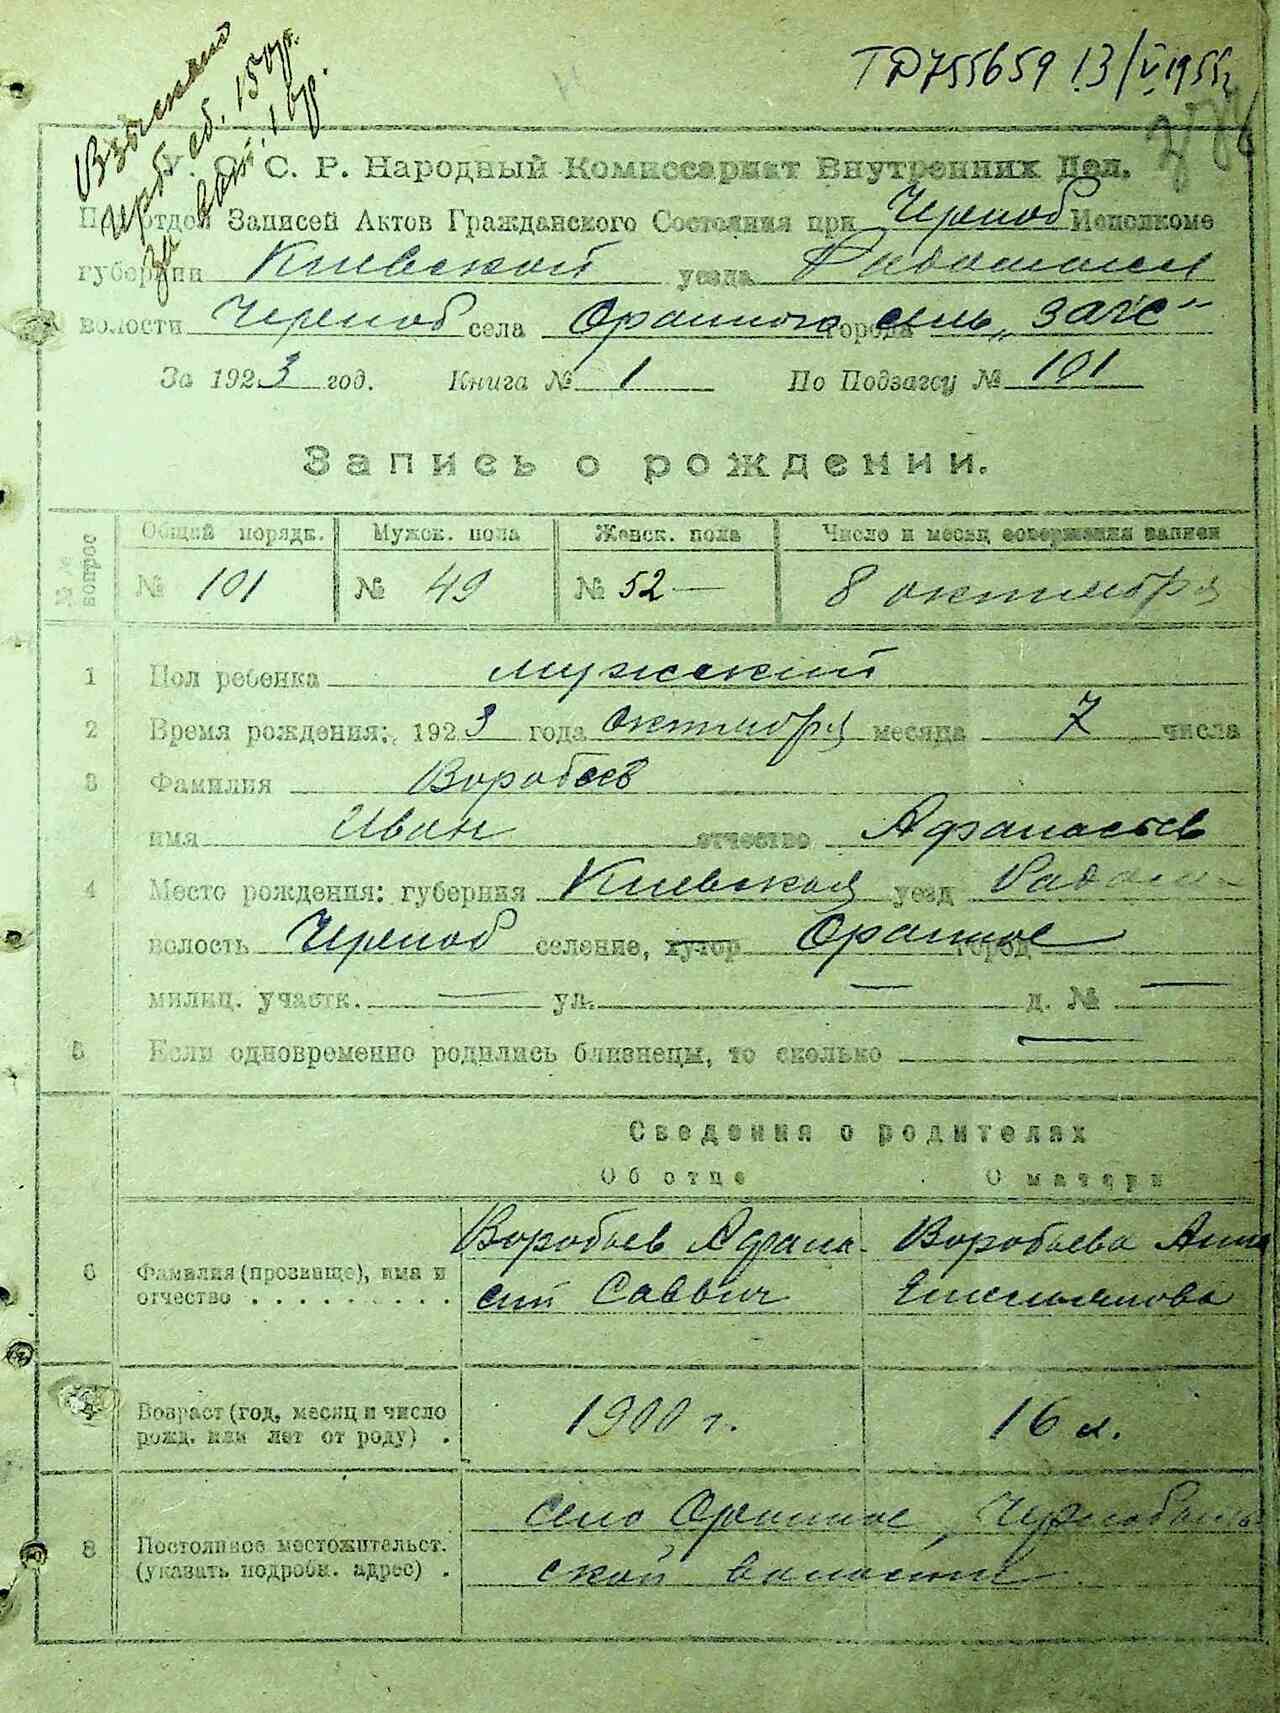 ТД755659 13/V 1955г
Взыскано
герб. сб. 15 ор.
за бл. 1 ор.
У. С. С. Р. Народный Комиссариат Внутренних Дел.
Подотдел Записей Актов Гражданского Состояния при Черноб Исполкоме
губернии Киевской уезда Радомысл
волости Черноб села Оранного города сель „загс"
За 1923 год. Книга № 1 По Подзагсу № 101
Запись о рождении.
№№ вопрос
Общий порядк. Мужск. пола Женск. пола Число и месяц совершения записи
№ 101 № 49 № 52 — 8 октября
1 Пол ребенка мужский
2 Время рождения: 1923 года Октября месяца 7 числа
3 Фамилия Воробьев
имя Иван отчество Афанасьев
4 Место рождения: губерния Киевская уезд Радом
волость Черноб селение, хутор Оранное город
милиц. участк. — ул. — д. № —
5 Если одновременно родились близнецы, то сколько —
Сведения о родителях
Об отце О матери
6 Фамилия (прозвище), имя и отчество . . . . . . . . .
Воробьев Афана- Воробьева Анна
сий Саввич Емельянова
Возраст (год, месяц и число рожд. или лет от роду) . 1900 г. 16 л.
8 Постоянное местожительст. (указать подробн. адрес) .
село Оранное, Чернобыль
ской волости